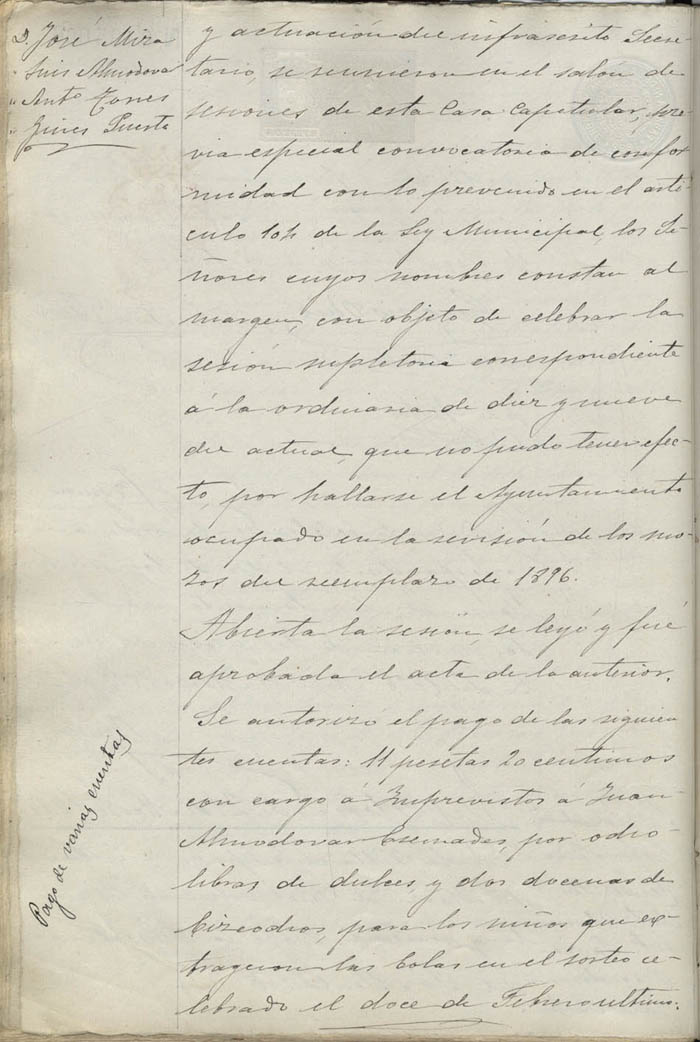 D. José Mira
" Luis Almodova
" Antº Torres
" Gines Puerta
y actuación del infrascrito Secre-
tario, se reunieron en el salon de
sesiones de esta Casa Capitular, pre-
via especial convocatoria de confor
midad con lo prevenido en el arti
culo 104 de la Ley Municipal, los Se-
ñores cuyos nombres constan al
margen, con objeto de celebrar la
sesión supletoria correspondiente
á la ordinaria de diez y nueve
del actual, que no pudo tener efec-
to, por hallarse el Ayuntamiento
ocupado en la revisión de los mo-
zos del reemplazo de 1896.
Abierta la sesión, se leyó y fué
aprobada el acta de la anterior.
Pago de varias cuentas
Se autorizó el pago de las siguien
tes cuentas: 11 pesetas 20 centimos
con cargo á Imprevistos á Juan
Almodovar, por ocho
libras de dulces y dos docenas de
bizcochos, para los niños que ex-
trageron las bolas en el sorteo ce-
lebrado el doce de Febrero ultimo.